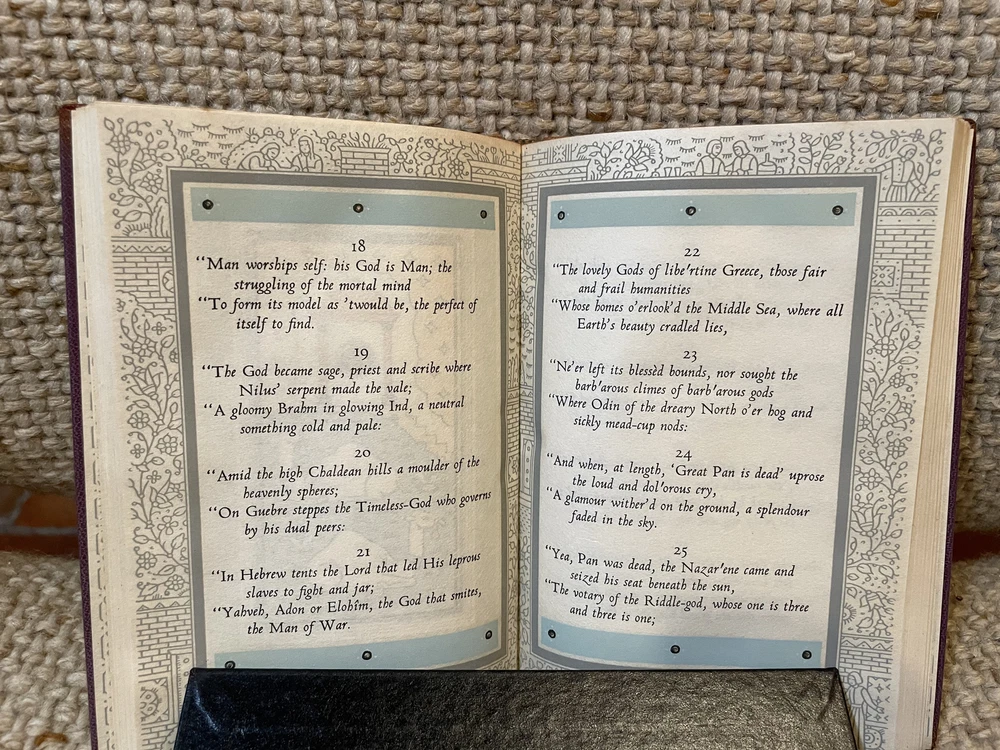 18
“Man worships self: his God is Man; the
struggling of the mortal mind
“To form its model as ’twould be, the perfect of
itself to find.
19
“The God became sage, priest and scribe where
Nilus’ serpent made the vale;
“A gloomy Brahm in glowing Ind, a neutral
something cold and pale:
20
“Amid the high Chaldean hills a moulder of the
heavenly spheres;
“On Guebre steppes the Timeless-God who governs
by his dual peers:
21
“In Hebrew tents the Lord that led His leprous
slaves to fight and jar;
“Yahveh, Adon or Elohîm, the God that smites,
the Man of War.
22
“The lovely Gods of libe’rtine Greece, those fair
and frail humanities
“Whose homes o’erlook’d the Middle Sea, where all
Earth’s beauty cradled lies,
23
“Ne’er left its blessèd bounds, nor sought the
barb’arous climes of barb’arous gods
“Where Odin of the dreary North o’er hog and
sickly mead-cup nods:
24
“And when, at length, ‘Great Pan is dead’ uprose
the loud and dol’orous cry,
“A glamour wither’d on the ground, a splendour
faded in the sky.
25
“Yea, Pan was dead, the Nazar’ene came and
seized his seat beneath the sun,
“The votary of the Riddle-god, whose one is three
and three is one;